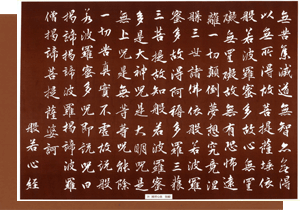 無苦集滅道無智亦無得
以無所得故菩提薩埵依
般若波羅蜜多故心無罣
礙無罣礙故無有恐怖遠
離一切顛倒夢想究竟涅
槃三世諸佛依般若波羅
蜜多故得阿耨多羅三藐
三菩提故知般若波羅蜜
多是大神咒是大明咒是
無上咒是無等等咒能除
一切苦真實不虛故說般
若波羅蜜多咒即說咒曰
揭諦揭諦波羅揭諦波羅
僧揭諦菩提薩婆訶
般若心經